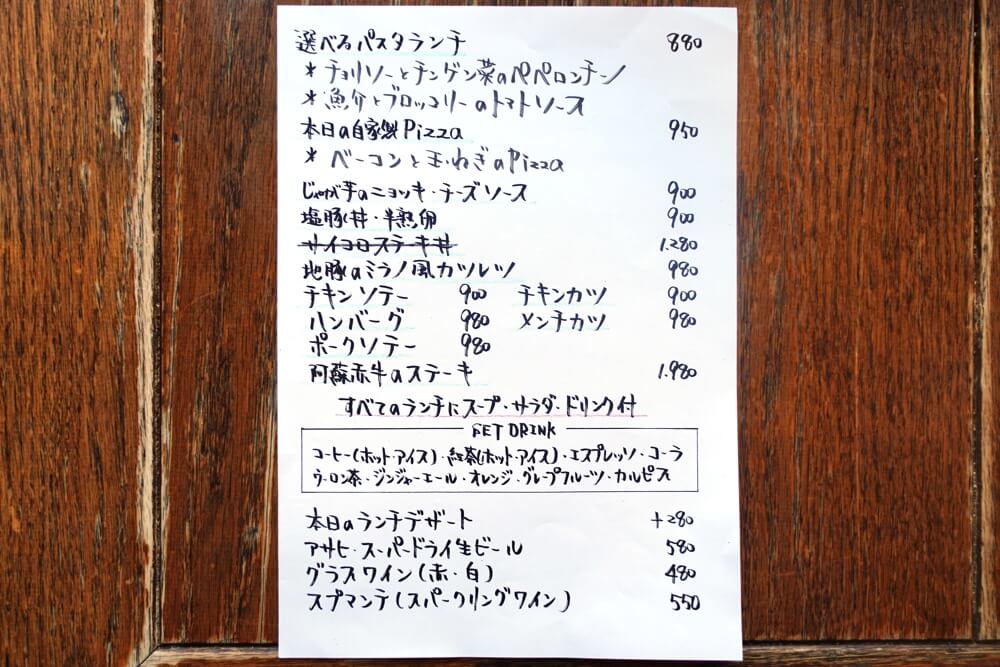 選べるパスタランチ 880
* チョリソーとチンゲン菜のペペロンチーノ
* 魚介とブロッコリーのトマトソース
本日の自家製Pizza 950
* ベーコンと玉ねぎのPizza
じゃが芋のニョッキ・チーズソース 900
塩豚丼・半熟卵 900
サイコロステーキ丼 1.280
地豚のミラノ風カツレツ 980
チキンソテー 900 チキンカツ 900
ハンバーグ 980 メンチカツ 980
ポークソテー 980
阿蘇赤牛のステーキ 1.980
すべてのランチにスープ・サラダ・ドリンク付
SET DRINK
コーヒー(ホット・アイス)・紅茶(ホット・アイス)・エスプレッソ・コーラ
ウーロン茶・ジンジャーエール・オレンジ・グレープフルーツ・カルピス
本日のランチデザート +280
アサヒ・スーパードライ生ビール 580
グラスワイン(赤・白) 480
スプマンテ(スパークリングワイン) 550